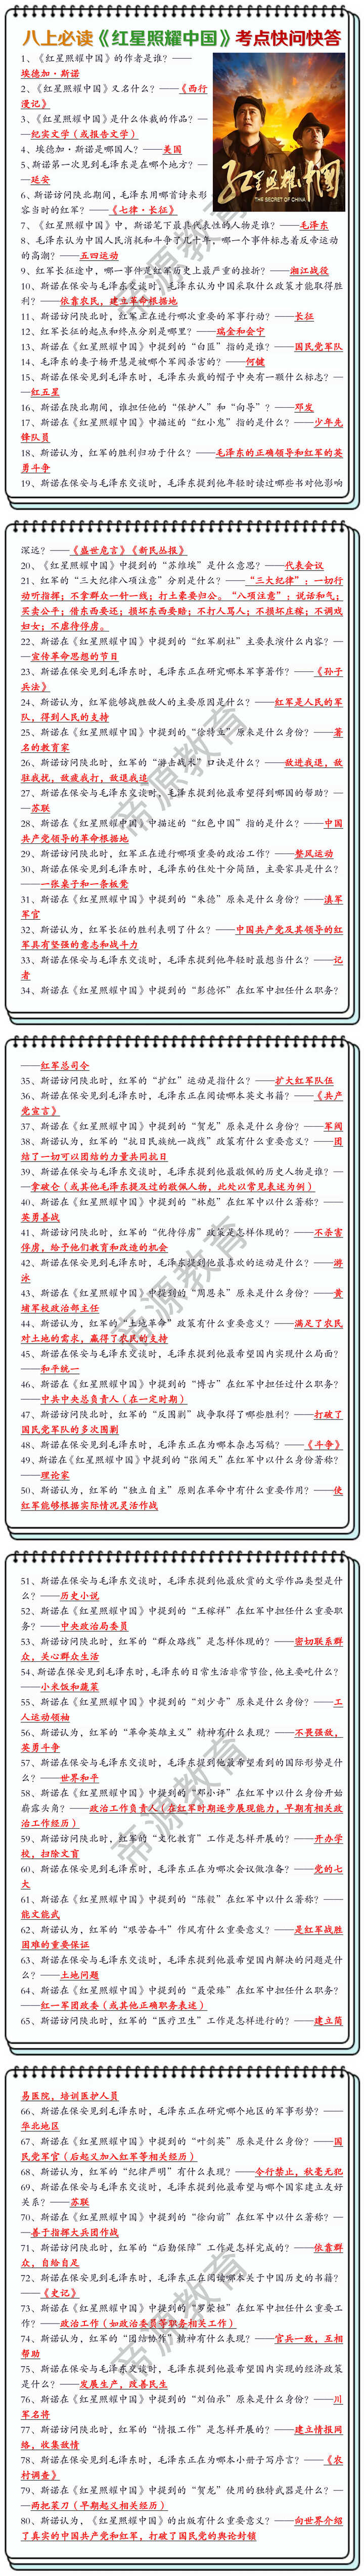 八上必读《红星照耀中国》考点快问快答
1、《红星照耀中国》的作者是谁？——
埃德加·斯诺
2、《红星照耀中国》又名什么？——《西行
漫记》
3、《红星照耀中国》是什么体裁的作品？—
—纪实文学（或报告文学）
4、埃德加·斯诺是哪国人？——美国
5、斯诺第一次见到毛泽东是在哪个地方？—
—延安
6、斯诺访问陕北期间，毛泽东用哪首诗来形
容当时的红军？——《七律·长征》
红星照耀中国
THE SECRET OF CHINA
7、《红星照耀中国》中，斯诺笔下最具代表性的人物是谁？——毛泽东
8、毛泽东认为中国人民消耗和斗争了几十年，哪一个事件标志着反帝运动
的高潮？——五四运动
9、红军长征途中，哪一事件是红军历史上最严重的挫折？——湘江战役
10、斯诺在保安与毛泽东交谈时，毛泽东认为中国采取什么政策才能取得胜
利？——依靠农民，建立革命根据地
11、斯诺访问陕北时，红军正在进行哪次重要的军事行动？——长征
12、红军长征的起点和终点分别是哪里？——瑞金和会宁
13、斯诺在《红星照耀中国》中提到的“白匪”指的是谁？——国民党军队
14、毛泽东的妻子杨开慧是被哪个军阀杀害的？——何键
15、斯诺在保安见到毛泽东时，毛泽东头戴的帽子中央有一颗什么标志？—
—红五星
16、斯诺在陕北期间，谁担任他的“保护人”和“向导”？——邓发
17、斯诺在《红星照耀中国》中描述的“红小鬼”指的是什么？——少年先
锋队员
18、斯诺认为，红军的胜利归功于什么？——毛泽东的正确领导和红军的英
勇斗争
19、斯诺在保安与毛泽东交谈时，毛泽东提到他年轻时读过哪些书对他影响
深远？——《盛世危言》《新民丛报》
20、《红星照耀中国》中提到的“苏维埃”是什么意思？——代表会议
21、红军的“三大纪律八项注意”分别是什么？——“三大纪律”：一切行
动听指挥；不拿群众一针一线；打土豪要归公。“八项注意”：说话和气；
买卖公平；借东西要还；损坏东西要赔；不打人骂人；不损坏庄稼；不调戏
妇女；不虐待俘虏。
22、斯诺在《红星照耀中国》中提到的“红军剧社”主要表演什么内容？—
—宣传革命思想的节目
23、斯诺在保安见到毛泽东时，毛泽东正在研究哪本军事著作？——《孙子
兵法》
24、斯诺认为，红军能够战胜敌人的主要原因是什么？——红军是人民的军
队，得到人民的支持
25、斯诺在《红星照耀中国》中提到的“徐特立”原来是什么身份？——著
名的教育家
26、斯诺访问陕北时，红军的“游击战术”口诀是什么？——敌进我退，敌
驻我扰，敌疲我打，敌退我追
27、斯诺在保安与毛泽东交谈时，毛泽东提到他最希望得到哪国的帮助？—
—苏联
28、斯诺在《红星照耀中国》中描述的“红色中国”指的是什么？——中国
共产党领导的革命根据地
29、斯诺访问陕北时，红军正在进行哪项重要的政治工作？——整风运动
30、斯诺在保安见到毛泽东时，毛泽东的住处十分简陋，主要家具是什么？
——一张桌子和一条板凳
31、斯诺在《红星照耀中国》中提到的“朱德”原来是什么身份？——滇军
军官
32、斯诺认为，红军长征的胜利表明了什么？——中国共产党及其领导的红
军具有坚强的意志和战斗力
33、斯诺在保安与毛泽东交谈时，毛泽东提到他年轻时最想当什么？——记
者
34、斯诺在《红星照耀中国》中提到的“彭德怀”在红军中担任什么职务？
——红军总司令
35、斯诺访问陕北时，红军的“扩红”运动是指什么？——扩大红军队伍
36、斯诺在保安见到毛泽东时，毛泽东正在阅读哪本英文书籍？——《共产
党宣言》
37、斯诺在《红星照耀中国》中提到的“贺龙”原来是什么身份？——军阀
38、斯诺认为，红军的“抗日民族统一战线”政策有什么重要意义？——团
结了一切可以团结的力量共同抗日
39、斯诺在保安与毛泽东交谈时，毛泽东提到他最敬佩的历史人物是谁？—
—拿破仑（或其他毛泽东提及过的敬佩人物，此处以常见表述为例）
40、斯诺在《红星照耀中国》中提到的“林彪”在红军中以什么著称？——
英勇善战
41、斯诺访问陕北时，红军的“优待俘虏”政策是怎样体现的？——不杀害
俘虏，给予他们教育和改造的机会
42、斯诺在保安见到毛泽东时，毛泽东提到他最喜欢的运动是什么？——游
泳
43、斯诺在《红星照耀中国》中提到的“周恩来”原来是什么身份？——黄
埔军校政治部主任
44、斯诺认为，红军的“土地革命”政策有什么重要意义？——满足了农民
对土地的需求，赢得了农民的支持
45、斯诺在保安与毛泽东交谈时，毛泽东提到他最希望国内实现什么局面？
——和平统一
46、斯诺在《红星照耀中国》中提到的“博古”在红军中担任过什么职务？
——中共中央总负责人（在一定时期）
47、斯诺访问陕北时，红军的“反围剿”战争取得了哪些胜利？——打破了
国民党军队的多次围剿
48、斯诺在保安见到毛泽东时，毛泽东正在为哪本杂志写稿？——《斗争》
49、斯诺在《红星照耀中国》中提到的“张闻天”在红军中以什么身份著称？
——理论家
50、斯诺认为，红军的“独立自主”原则在革命中有什么重要作用？——使
红军能够根据实际情况灵活作战
51、斯诺在保安与毛泽东交谈时，毛泽东提到他最欣赏的文学作品类型是什
么？——历史小说
52、斯诺在《红星照耀中国》中提到的“王稼祥”在红军中担任什么重要职
务？——中央政治局委员
53、斯诺访问陕北时，红军的“群众路线”是怎样体现的？——密切联系群
众，关心群众生活
54、斯诺在保安见到毛泽东时，毛泽东的日常生活非常节俭，他主要吃什么？
——小米饭和蔬菜
55、斯诺在《红星照耀中国》中提到的“刘少奇”原来是什么身份？——工
人运动领袖
56、斯诺认为，红军的“革命英雄主义”精神有什么表现？——不畏强敌，
英勇斗争
57、斯诺在保安与毛泽东交谈时，毛泽东提到他最希望看到的国际形势是什
么？——世界和平
58、斯诺在《红星照耀中国》中提到的“邓小评”在红军中以什么身份开始
崭露头角？——政治工作负责人（在红军时期逐步展现能力，早期有相关政
治工作经历）
59、斯诺访问陕北时，红军的“文化教育”工作是怎样开展的？——开办学
校，扫除文盲
60、斯诺在保安见到毛泽东时，毛泽东正在为哪次会议做准备？——党的七
大
61、斯诺在《红星照耀中国》中提到的“陈毅”在红军中以什么著称？——
能文能武
62、斯诺认为，红军的“艰苦奋斗”作风有什么重要意义？——是红军战胜
困难的重要保证
63、斯诺在保安与毛泽东交谈时，毛泽东提到他最希望国内解决的问题是什
么？——土地问题
64、斯诺在《红星照耀中国》中提到的“聂荣臻”在红军中担任什么职务？
——红一军团政委（或其他正确职务表述）
65、斯诺访问陕北时，红军的“医疗卫生”工作是怎样进行的？——建立简
易医院，培训医护人员
66、斯诺在保安见到毛泽东时，毛泽东正在研究哪个地区的军事形势？——
华北地区
67、斯诺在《红星照耀中国》中提到的“叶剑英”原来是什么身份？——国
民党军官（后起义加入红军等相关经历）
68、斯诺认为，红军的“纪律严明”有什么表现？——令行禁止，秋毫无犯
69、斯诺在保安与毛泽东交谈时，毛泽东提到他最希望与哪个国家建立友好
关系？——苏联
70、斯诺在《红星照耀中国》中提到的“徐向前”在红军中以什么著称？—
—善于指挥大兵团作战
71、斯诺访问陕北时，红军的“后勤保障”工作是怎样完成的？——依靠群
众，自给自足
72、斯诺在保安见到毛泽东时，毛泽东正在阅读哪本关于中国历史的书籍？
——《史记》
73、斯诺在《红星照耀中国》中提到的“罗荣桓”在红军中担任什么重要工
作？——政治工作（如政治委员等职务相关工作）
74、斯诺认为，红军的“团结协作”精神有什么表现？——官兵一致，互相
帮助
75、斯诺在保安与毛泽东交谈时，毛泽东提到他最希望国内实现的经济政策
是什么？——发展生产，改善民生
76、斯诺在《红星照耀中国》中提到的“刘伯承”原来是什么身份？——川
军名将
77、斯诺访问陕北时，红军的“情报工作”是怎样开展的？——建立情报网
络，收集敌情
78、斯诺在保安见到毛泽东时，毛泽东正在为哪本小册子写序言？——《农
村调查》
79、斯诺在《红星照耀中国》中提到的“贺龙”使用的独特武器是什么？—
—两把菜刀（早期起义相关经历）
80、斯诺认为，《红星照耀中国》的出版有什么重要意义？——向世界介绍
了真实的中国共产党和红军，打破了国民党的舆论封锁
帝源教育
帝源教育
帝源教育
帝源教育
帝源教育